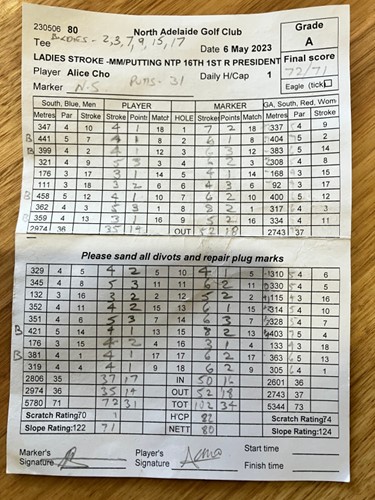 230506 80 North Adelaide Golf Club
Tee BIRDIES - 2,3,7,9,15,17 Date 6 May 2023
Grade
A
LADIES STROKE -MM/PUTTING NTP 16TH 1ST R PRESIDENT
Final score
72/71
Player Alice Cho PUTTS - 31 Daily H/Cap 1
Marker N.S Eagle (tick)
South, Blue, Men PLAYER MARKER GA, South, Red, Wom
Metres Par Stroke Stroke Points Match HOLE Stroke Points Match Metres Par Stroke
347 4 10 4 1 18 1 7 2 18 337 4 9
B 441 5 7 4 1 8 2 8 404 5 2
B 399 4 2 4 1 12 3 6 3 12 383 5 14
321 4 9 5 3 3 4 6 2 3 308 4 8
176 3 17 3 1 14 5 4 1 14 168 3 15
111 3 18 3 2 6 6 4 3 6 92 3 17
B 458 5 12 4 1 10 7 6 2 10 400 5 12
362 4 3 5 3 1 8 1 317 4 3
B 359 4 13 3 1 16 9 5 2 16 334 4 11
2974 36 35 14 OUT 52 18 2743 37
Please sand all divots and repair plug marks
329 4 5 4 2 5 10 4 5 310 4 6
345 4 8 5 3 11 11 6 2 11 330 4 5
132 3 16 3 2 2 12 5 2 2 115 3 16
352 4 11 4 2 15 13 6 1 15 314 4 10
351 4 6 5 3 7 14 6 3 7 328 4 7
B 421 5 14 4 1 13 15 8 2 13 403 5 4
176 3 15 4 2 4 16 3 1 4 133 3 18
B 381 4 1 4 1 17 17 6 2 17 363 5 13
319 4 4 4 1 9 18 6 2 9 305 4 1
2806 35 37 17 IN 50 16 2601 36
2974 36 35 14 OUT 52 18 2743 37
5780 71 72 31 TOT 102 34 5344 73
Scratch Rating 70 1 H'CP Scratch Rating 74
Slope Rating: 122 71 NETT 80 Slope Rating: 124
Marker's Signature Player's Signature Start time
Finish time